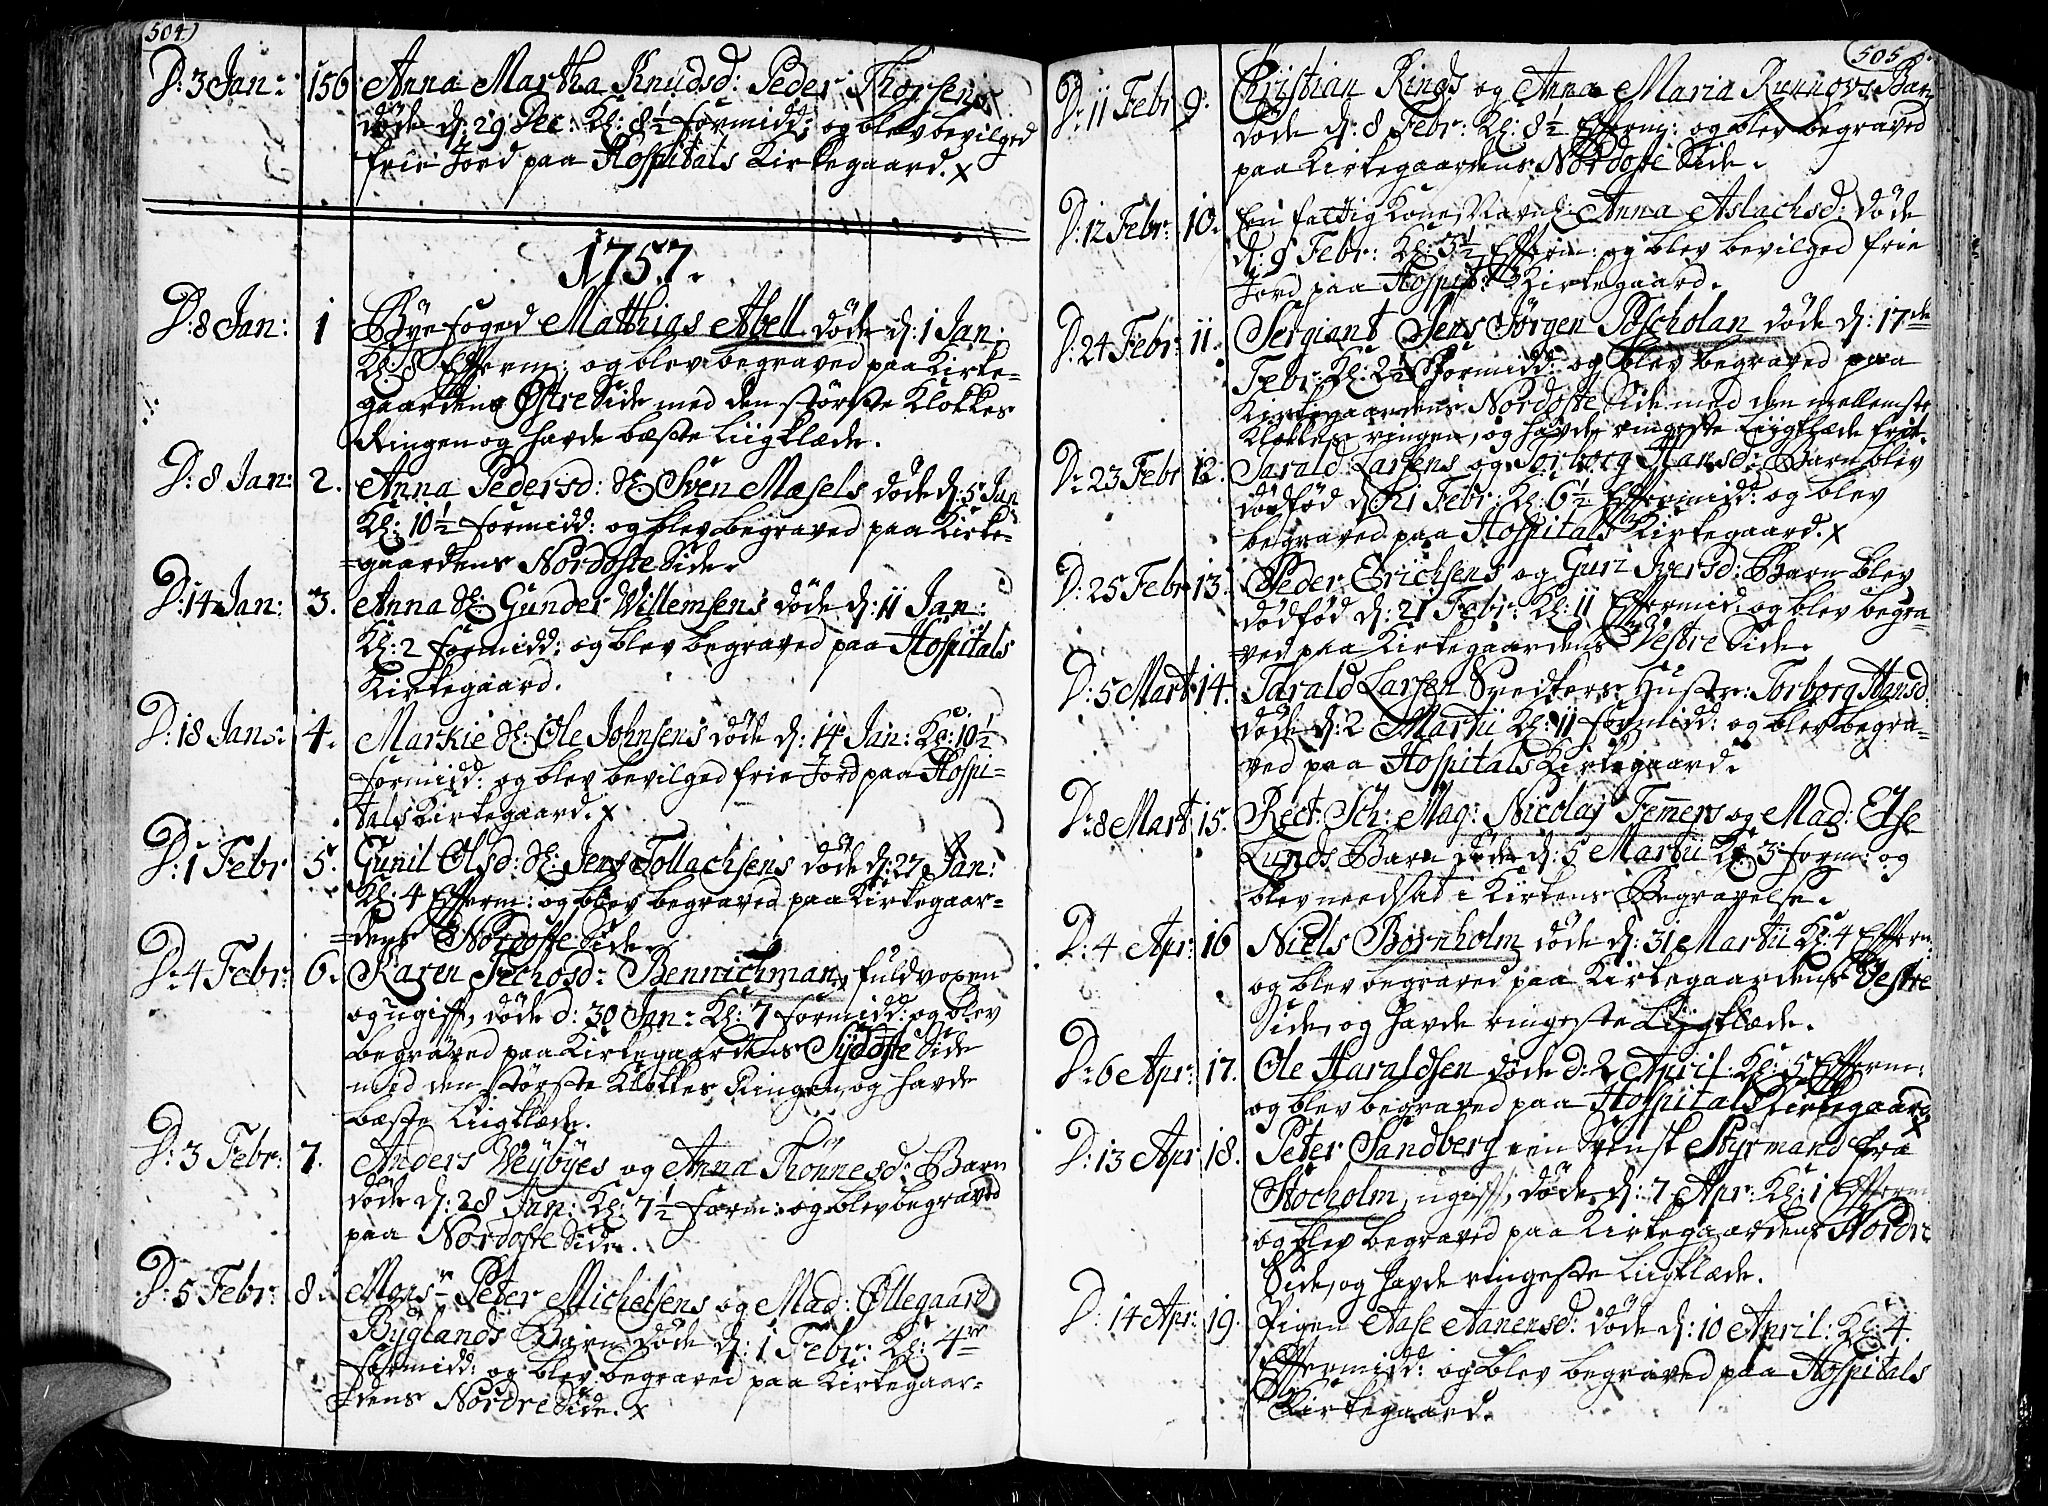 504)
D: 3 Jan: 156. Anna Martha Knudsd: Peder Thorsens
døde d: 29 Dec: Kl: 8½ formidd: og blev bevilged
frie Jord paa Hospitals Kirkegaard. x
1757.
D: 8 Jan: 1 Bye foged Matthias Abell døde d: 1 Jan:
Kl: 8 Efterm: og blev begraved paa Kirke-
gaardens Østre Side med den største Klokkes
Ringen og havde bæste Liigklæde.
D: 8 Jan: 2. Anna Pedersd: Sven Mæsels døde d: 5 Jan
Kl: 10½ formidd: og blev begraved paa Kirke-
=gaardens Nordoste Side.
D: 14 Jan: 3. Anna Gunder Willemsens døde d: 11 Jan:
Kl: 2 formidd: og blev begraved paa Hospitals
Kirkegaard.
D: 18 Jan: 4. Markie Ole Johnsens døde d: 14 Jan: Kl: 10½
formidd: og blev bevilged frie Jord paa Hospi-
tals Kirkegaard. x
D: 1 Febr 5. Gunil Olsd: Jens Tollachsens døde d: 27 Jan:
Kl: 4 Efterm: og blev begraved paa Kirkegaar-
=dens Nordoste Side
D: 4 Febr: 6. Karen Bennichman, fuldvoxen
og ugift, døde d: 30 Jan: Kl: 7 formidd: og blev
begraved paa Kirkegaardens Sydoste Side
med den største Klokkes Ringen, og havde
bæste Liigklæde.
D: 3 Febr: 7. Anders Weybyes og Anna Thonnesd: Barn
døde d: 28 Jan: Kl: 7½ form: og blev begraved
paa Nordoste Side.
D: 5 Febr: 8. Monsr Peter Michelsens og Mad: Øllegaard
Byglands Barn døde d: 1 Febr: Kl: 4
formidd: og blev begraved paa Kirkegaar-
=dens Nordre Side. x
505
D: 11 Febr 9. Christian Rings og Anna Maria Barn
døde d: 8 Febr: Kl: 8½ Efterm: og blev begraved
paa Kirkegaardens Nordoste Side.
D: 12 Febr: 10. En fattig Kone Navnl: Anna Aslachsd: døde
d: 9 Febr: Kl: 3½ Efterm: og blev bevilged frie
Jord paa Hospit: Kirkegaard.
D: 24 Febr: 11. Sergiant Jens Jørgen Poscholan døde d: 17de
Febr: Kl: 2½ Formidd: og blev begraved paa
Kirkegaardens Nordoste Side med den mellemste
Klokkes ringen, og havde ringeste Liigklæde frit.
D: 23 Febr 12. Tarald Larsens og Torborg Hansd: Barn blev
dødfød d: 21 Febr: Kl: 6½ Eftermidd: og blev
begraved paa Hospitals Kirkegaard. x
D: 25 Febr 13. Peder Erichsens og Guri Iversd: Barn blev
dødfød d: 21 Febr: Kl: 11 Eftermid: og blev begra-
=ved paa Kirkegaardens Vestre Side.
D: 5 Mart 14. Tarald Larsen Hustr: Torborg Hansd:
døde d: 2 Martii Kl: 11 formidd: og blev begra-
ved paa Hospitals Kirkegaard.
D: 8 Mart 15. Rect: Sch: Mag: Nicolay Femers og Mad: Else
Lunds Barn døde d: 5 Martii Kl: 3 form: og
blev needsat i Kirkens Begravelse.
D: 4 Apr: 16 Niels Bornholm døde d: 31 Martii Kl: 4 Efterm:
og blev begraved paa Kirkegaardens Vestre
Side, og havde ringeste Liigklæde.
D: 6 Apr: 17. Ole Haraldsen døde d: 2 April: Kl: 5 Efterm:
og blev begraved paa Hospitals Kirkegaard x
D: 13 Apr 18. Peter Sandberg en svensk Styrmand fra
Stocholm, ugift, døde d: 7 Apr: Kl: 1 Efterm
og blev begraved paa Kirkegaardens Nordre
Side, og havde ringeste Liigklæde.
D: 14 Apr: 19. Pigen Aase Aanensd: døde d: 10 April: Kl: 4.
Eftermidd: og blev begraved paa Hospitals
Kirkegaard.